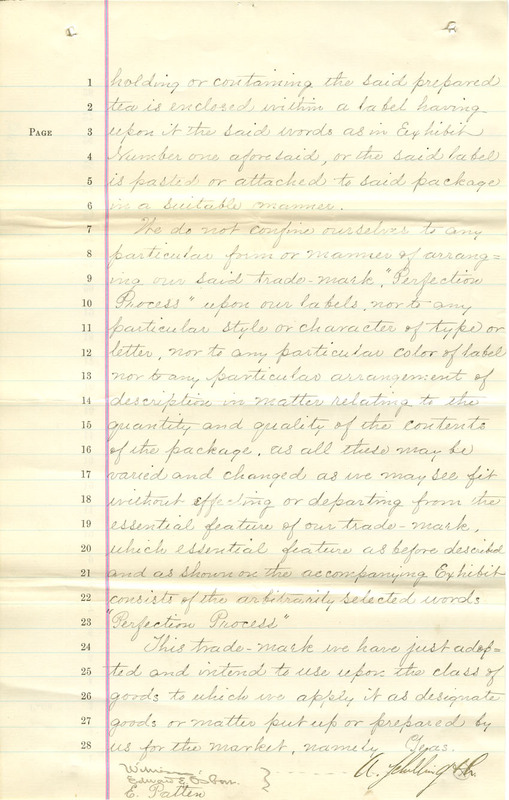 1 holding or containing the said prepared
2 tea is enclosed within a label having
PAGE 3 upon it the said words as in Exhibit
4 Number one aforesaid, or the said label
5 is pasted or attached to said package
6 in a suitable manner.
7 We do not confine ourselves to any
8 particular form or manner of arrang=
9 ing our said trade-mark, "Perfection
10 Process" upon our labels, nor to any
11 particular style or character of type or
12 letter, nor to any particular color of label
13 nor to any particular arrangement of
14 description in matter relating to the
15 quantity and quality of the contents
16 of the package, as all these may be
17 varied and changed as we may see fit
18 without effecting or departing from the
19 essential feature of our trade-mark,
20 which essential feature as before described
21 and as shown on the accompanying Exhibit
22 consists of the arbitrarily selected words
23 "Perfection Process"
24 This trade-mark we have just adop=
25 ted and intend to use upon the class of
26 goods to which we apply it as designate
27 goods or matter put up or prepared by
28 us for the market, namely Teas.
Witnesses
A. Schilling & Co.
Edward E. Osborn
E. Patten